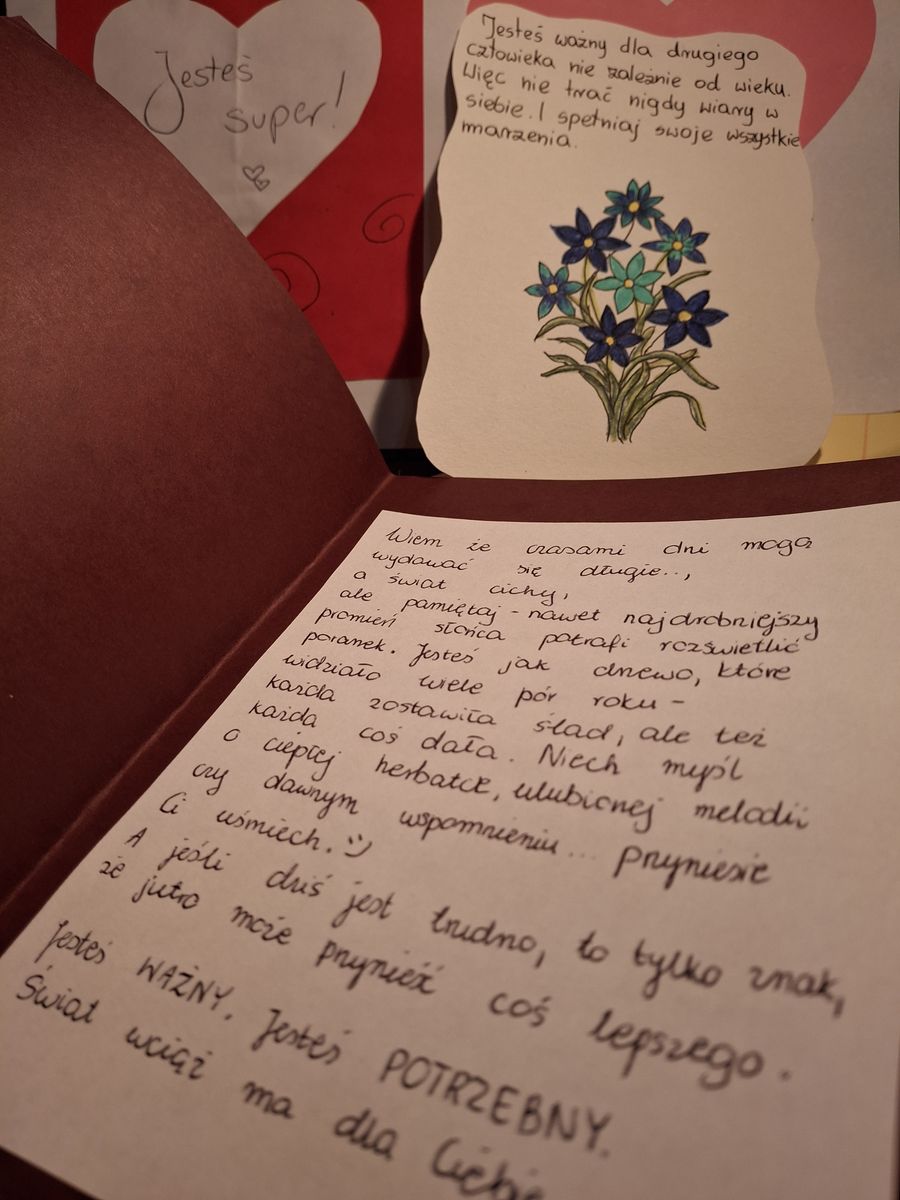 Jesteś
super!
Jesteś ważny dla drugiego
człowieka nie zależnie od wieku.
Więc nie trać nigdy wiary w
siebie. I spełniaj swoje wszystkie
marzenia.
Wiem że czasami dni mogą
wydawać się długie..,
a świat cichy,
ale pamiętaj - nawet najdrobniejszy
promień słońca potrafi rozświetlić
poranek. Jesteś jak drzewo, które
widziało wiele pór roku -
każda zostawiła ślad, ale też
każda coś dała. Niech myśl
o ciepłej herbatce, ulubionej melodii
czy dawnym wspomnieniu... przyniesie
Ci uśmiech. :)
A jeśli dziś jest trudno, to tylko znak,
że jutro może przynieść coś lepszego.
Jesteś WAŻNY. Jesteś POTRZEBNY.
Świat wciąż ma dla Ciebie